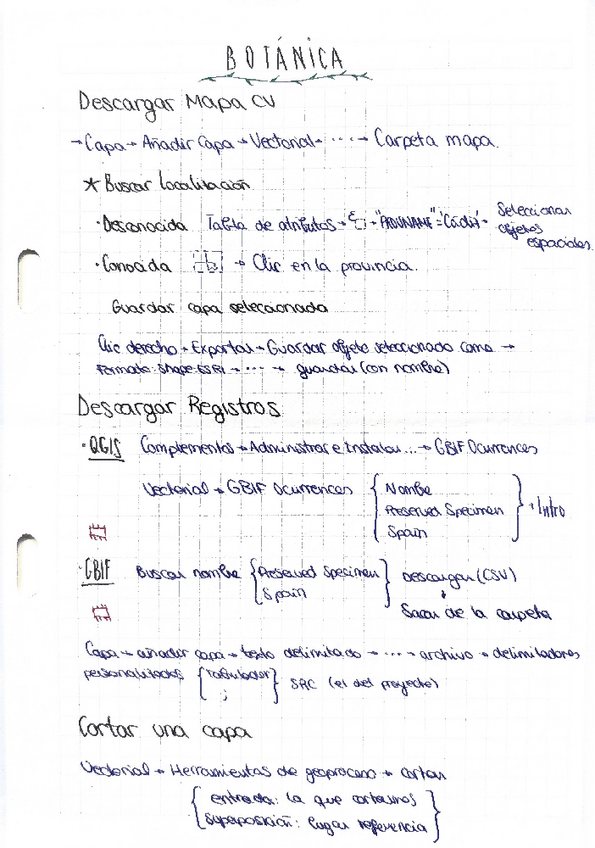 BOTÁNICA
Descargar Mapa CV
→ Capa → Añadir capa → Vectorial → ... → Carpeta mapa.
* Buscar localización
· Desconocida Tabla de atributos → → "ADUNAME" = 'Cádiz' → Seleccionar objetos espaciales.
· Conocida → Clic en la provincia.
Guardar capa seleccionada
Clic derecho → Exportar → Guardar objeto seleccionado como →
Formato: Shape ESRI → ... → guardar (con nombre)
Descargar Registros
· QGIS Complementos → Administrar e Instalar... → GBIF Ocurrences
Vectorial → GBIF Ocurrences { Nombre
Preserved Specimen } → Intro
Spain
· GBIF Buscar nombre { Preserved Specimen } Descargar (CSV)
Spain ↓
Sacar de la carpeta
Capa → añadir capa → texto delimitado → ... → archivo → delimitadores
personalizados { Tabulador } SRC (el del proyecto)
;
Cortar una capa
Vectorial → Herramientas de geoproceso → cortar
{ entrada: la que cortamos
superposición: lugar referencia }